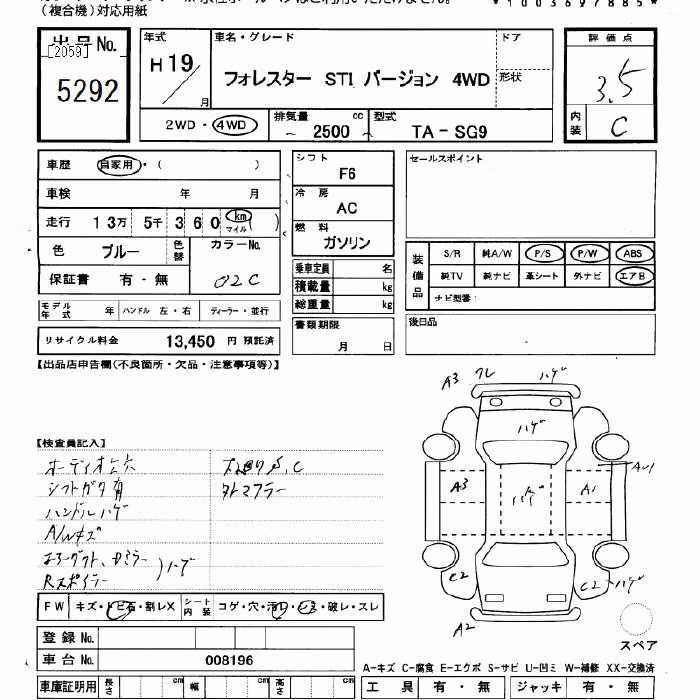 （複合機）対応用紙
*1003697885*
出品No.
[2059]
5292
年式
H19/
月
車名・グレード
フォレスター STI バージョン 4WD
ドア
形状
評価点
3.5
内装
C
2WD・4WD
排気量
cc
2500
型式
TA-SG9
車歴
自家用・（ ）
車検
年 月
走行
13万 5千 360 km マイル
色
ブルー
色替
カラーNo.
02C
保証書
有・無
モデル年式
年
ハンドル 左・右
ディーラー・並行
リサイクル料金
13,450 円 預託済
シフト
F6
冷房
AC
燃料
ガソリン
乗車定員
名
積載量
kg
総重量
kg
書類期限
月 日
セールスポイント
装備品
S/R 純A/W P/S P/W ABS
純TV 純ナビ 革シート 外ナビ エアB
ナビ型番：
後日品
【出品店申告欄(不良箇所・欠品・注意事項等)】
【検査員記入】
オーディオ欠
シフトガタ有
ハンドルハゲ
A/Wキズ
エアーダクト、Dミラー
Rスポイラー
ハゲ
外マフラー
FW
キズ・トビ石・割レX
シート内装
コゲ・穴・汚レ・シミ・破レ・スレ
登録No.
車台No.
008196
車庫証明用
長さ
cm
幅
cm
高さ
cm
A3
ワレ
ハゲ
ハゲ
A3
ハゲ
A1
AU1
C2
C2
ハゲ
A2
スペア
A-キズ C-腐食 E-エクボ S-サビ U-凹ミ W-補修 XX-交換済
工具
有・無
ジャッキ
有・無